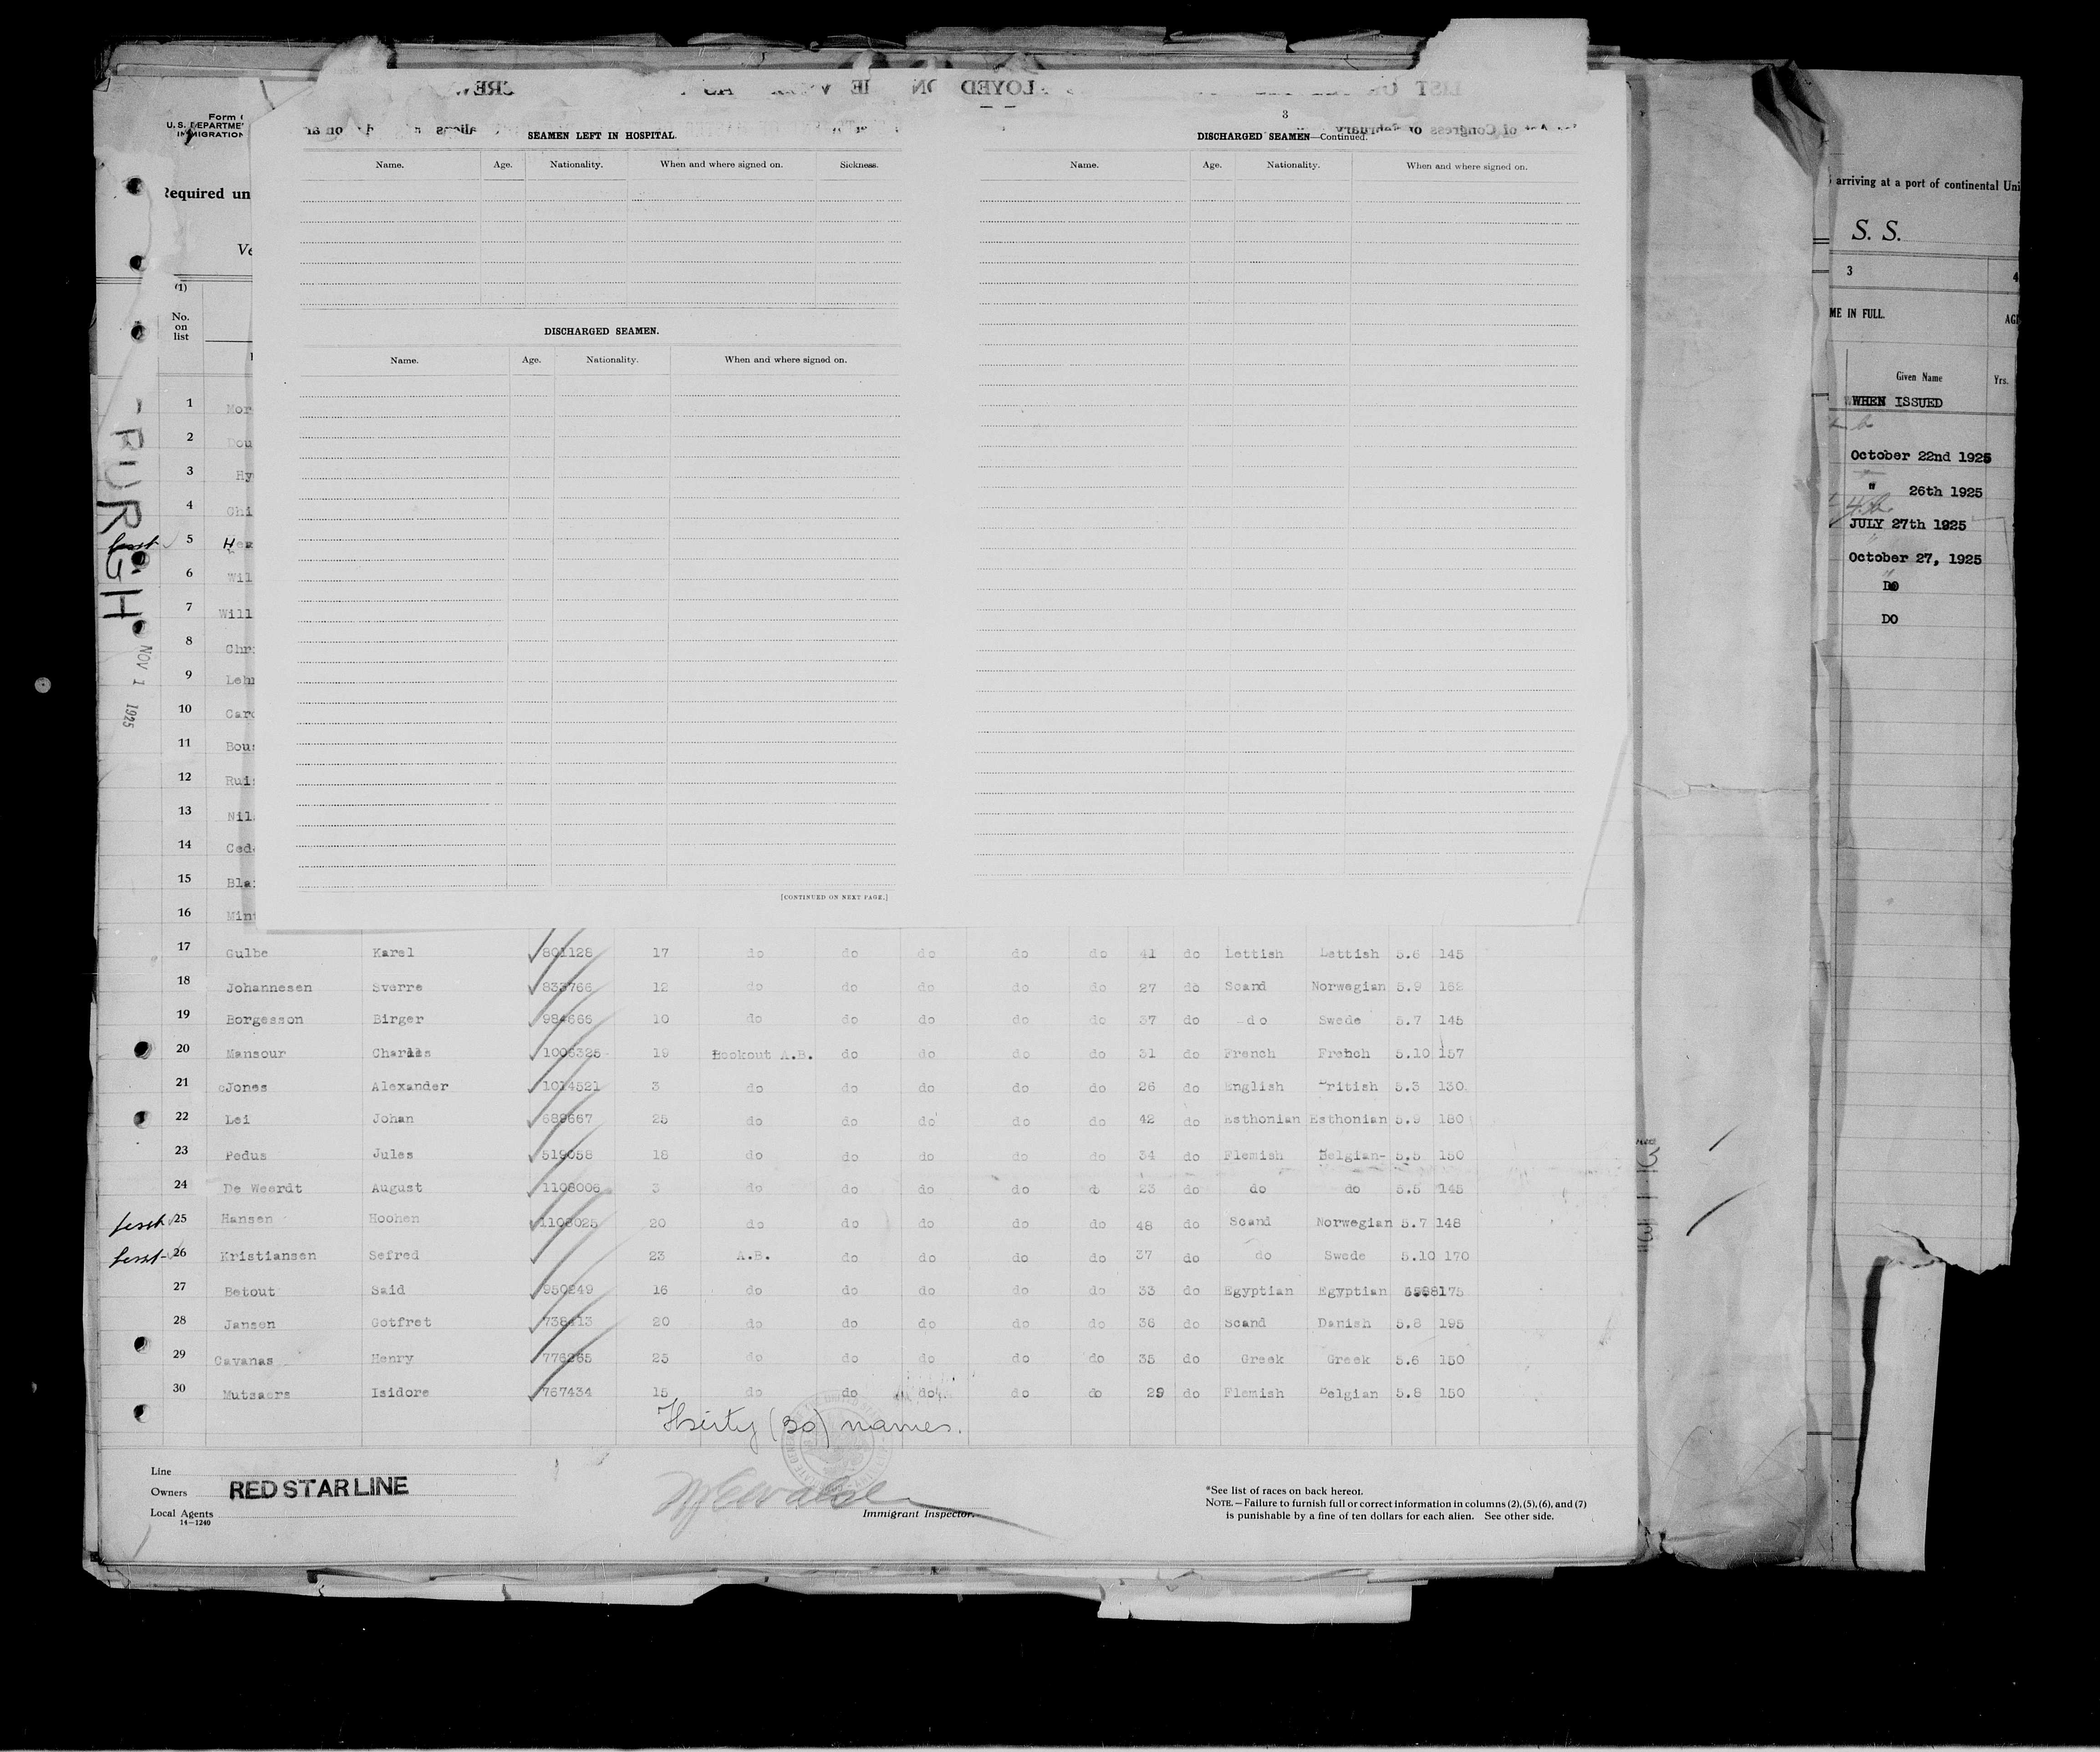 Form
U. S. DEPARTME
IMMIGRATION
Required un
Ve
(1)
No.
on
list
3
SEAMEN LEFT IN HOSPITAL.
Name. Age. Nationality. When and where signed on. Sickness.
DISCHARGED SEAMEN.
Name. Age. Nationality. When and where signed on.
[CONTINUED ON NEXT PAGE.]
DISCHARGED SEAMEN—Continued.
Name. Age. Nationality. When and where signed on.
arriving at a port of continental Uni
S. S.
3 4
ME IN FULL. AG
Given Name Yrs.
WHEN ISSUED
October 22nd 1925
" 26th 1925
JULY 27th 1925
October 27, 1925
DO
DO
NOV 1 1925
1 Mor
2 Dou
3 Hy
4 Chi
5 H
6 Wil
7 Will
8 Chr
9 Leh
10 Car
11 Bou
12 Rui
13 Nil
14 Ced
15 Bla
16 Min
17 Gulbe Karel 801128 17 do do do do do 41 do Lettish Lettish 5.6 145
18 Johannesen Sverre 833766 12 do do do do do 27 do Scand Norwegian 5.9 152
19 Borgesson Birger 984666 10 do do do do do 37 do do Swede 5.7 145
20 Mansour Charles 1006325 19 Lookout A.B. do do do do 31 do French French 5.10 157
21 Jones Alexander 1014521 3 do do do do do 26 do English British 5.3 130
22 Lei Johan 689667 25 do do do do do 42 do Esthonian Esthonian 5.9 180
23 Pedus Jules 519058 18 do do do do do 34 do Flemish Belgian- 5.5 150
24 De Weerdt August 1108006 3 do do do do do 23 do do do 5.5 145
25 Hansen Hoohen 1108025 20 do do do do do 48 do Scand Norwegian 5.7 148
26 Kristiansen Sefred 23 A.B. do do do do 37 do do Swede 5.10 170
27 Betout Said 950249 16 do do do do do 33 do Egyptian Egyptian 175
28 Jansen Gotfret 738413 20 do do do do do 36 do Scand Danish 5.8 195
29 Cavanas Henry 776265 25 do do do do do 35 do Greek Greek 5.6 150
30 Mutsaers Isidore 767434 15 do do do do do 29 do Flemish Belgian 5.8 150
Thirty (30) names.
Line
Owners RED STAR LINE
Local Agents
14—1240
Immigrant Inspector.
*See list of races on back hereof.
NOTE.—Failure to furnish full or correct information in columns (2), (5), (6), and (7)
is punishable by a fine of ten dollars for each alien. See other side.